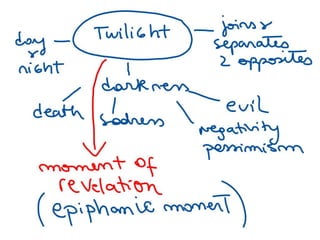 Twilight
day
&
night
joins &
separates
2 opposites
darkness
death
sadness
evil
negativity
pessimism
moment of
revelation
(epiphanic moment)